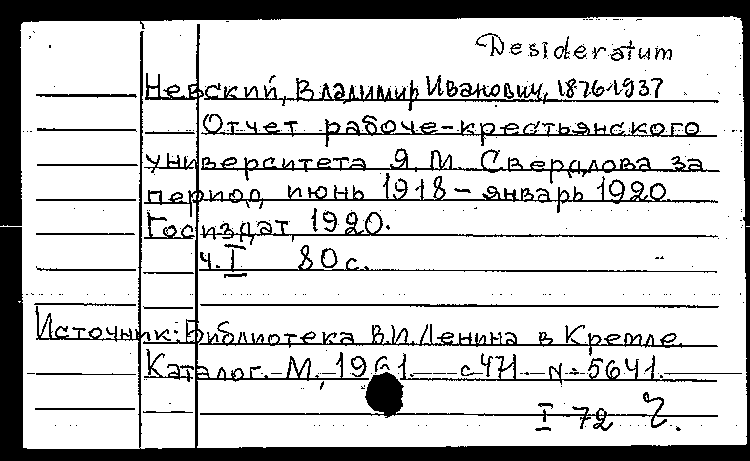 Desideratum
Невский, Владимир Иванович, 1876-1937
Отчет рабоче-крестьянского
университета Я. М. Свердлова за
период июнь 1918 - январь 1920
Госиздат, 1920.
ч. I 80 с.
Источник: Библиотека В.И. Ленина в Кремле.
Каталог. М., 1961. с 471 N 5641.
I 72